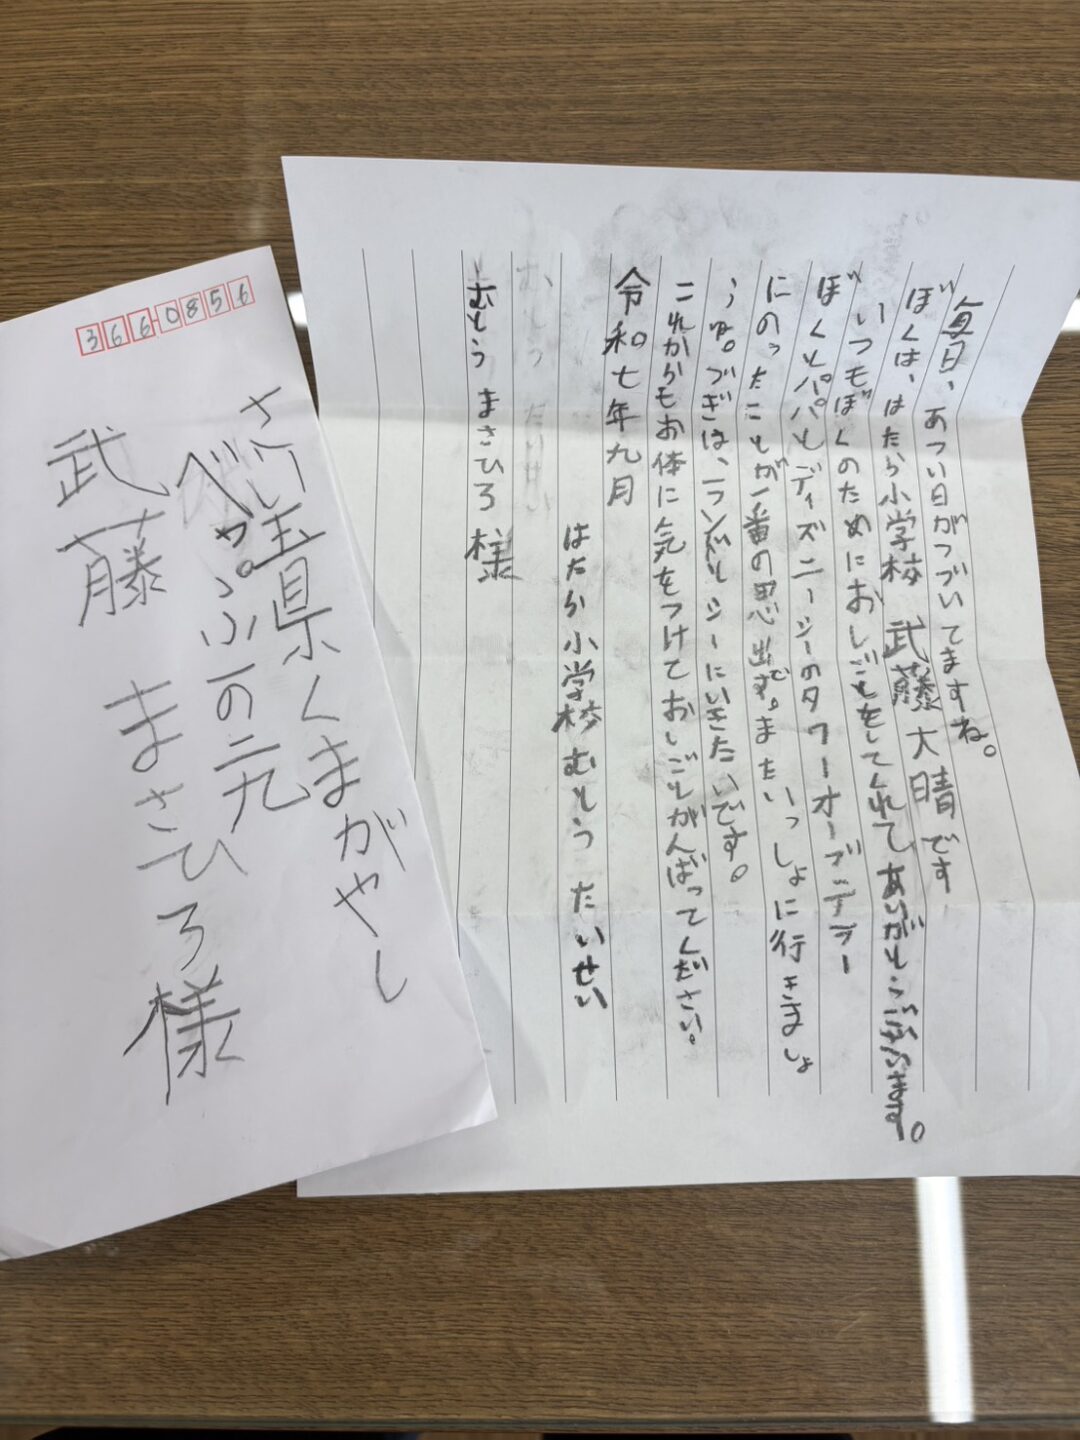 毎日、あつい日がつづいてますね。
ぼくは、はたら小学校 武藤大晴です
いつもぼくのためにおしごとをしてくれてありがとうございます。
ぼくとパパとディズニーシーのタワーオーブテラー
にのったことが一番の思出です。またいっしょに行きましょ
うね。つぎは、ランドとシーにいきたいです。
これからもお体に気をつけておしごとがんばってください。
令和七年九月
はたら小学校むとう たいせい
むとう まさひろ 様
3660856
さい玉県くまがやし
べっぷ一の二九
武藤 まさひろ様